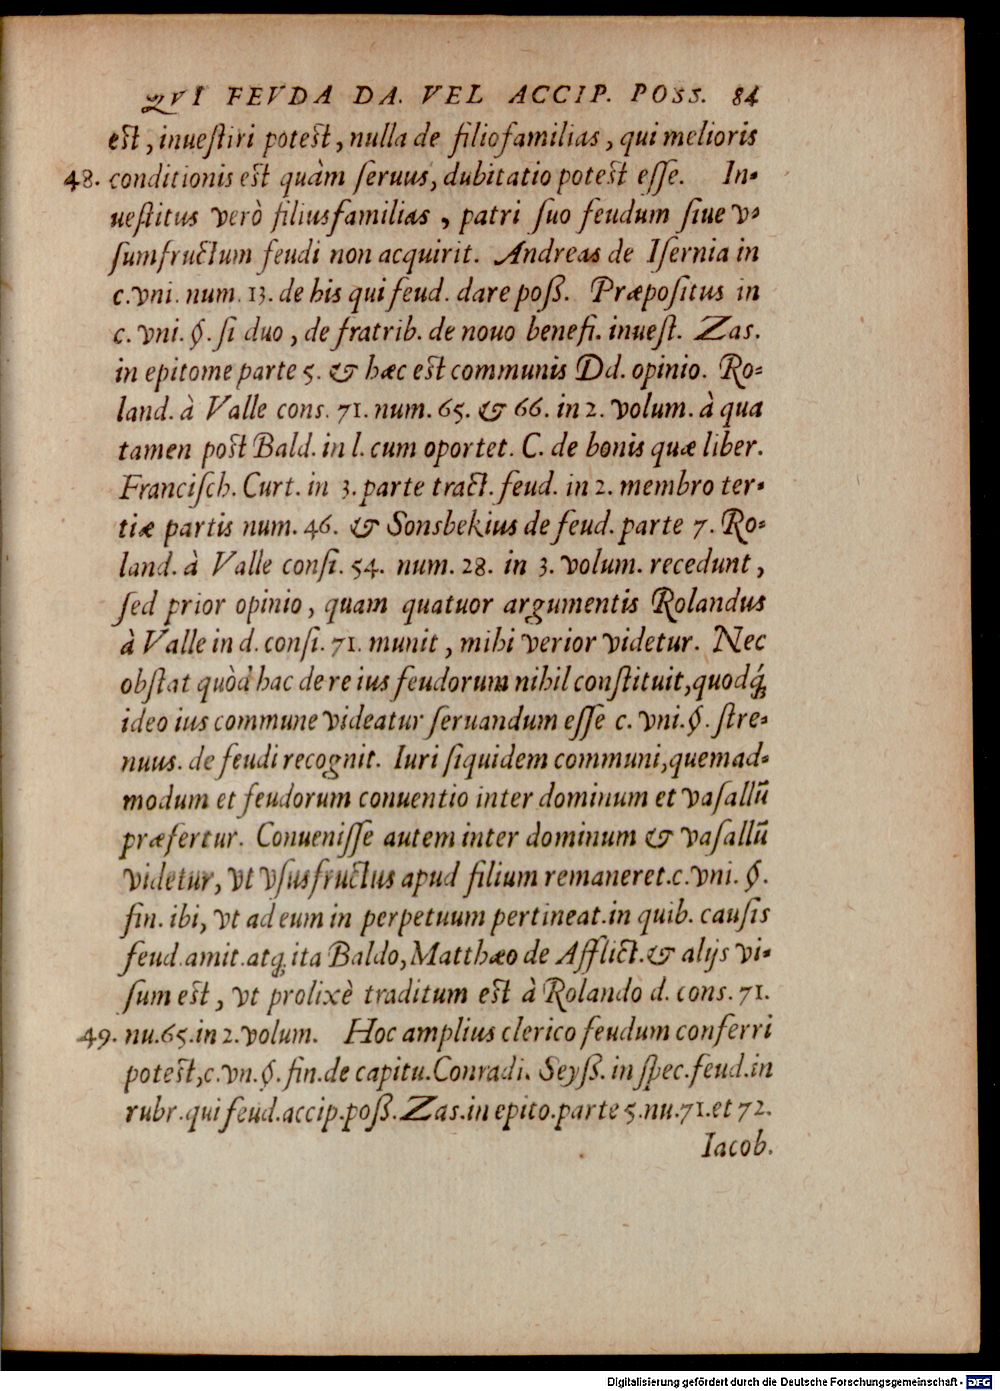 QVI FEVDA DA. VEL ACCIP. POSS. 84
est, inueſtiri potest, nulla de filiofamilias, qui melioris
48. conditionis est quàm ſeruus, dubitatio potest eſſe. In-
ueſtitus verò filiusfamilias, patri ſuo feudum ſiue v-
ſumfructum feudi non acquirit. Andreas de Iſernia in
c. vni. num. 13. de his qui feud. dare poß. Præpoſitus in
c. vni. §. ſi duo, de fratrib. de nouo benefi. inueſt. Zas.
in epitome parte 5. & hæc est communis Dd. opinio. Ro-
land. à Valle cons. 71. num. 65. & 66. in 2. volum. à qua
tamen post Bald. in l. cum oportet. C. de bonis quæ liber.
Franciſch. Curt. in 3. parte tract. feud. in 2. membro ter-
tiæ partis num. 46. & Sonsbekius de feud. parte 7. Ro-
land. à Valle conſi. 54. num. 28. in 3. volum. recedunt,
ſed prior opinio, quam quatuor argumentis Rolandus
à Valle in d. conſi. 71. munit, mihi verior videtur. Nec
obſtat quòd hac de re ius feudorum nihil conſtituit, quodq́;
ideo ius commune videatur ſeruandum eſſe c. vni. §. ſtre-
nuus. de feudi recognit. Iuri ſiquidem communi, quemad-
modum et feudorum conuentio inter dominum et vaſallū
præfertur. Conueniſſe autem inter dominum & vaſallū
videtur, vt vſusfructus apud filium remaneret. c. vni. §.
fin. ibi, vt ad eum in perpetuum pertineat. in quib. cauſis
feud. amit. atq; ita Baldo, Matthæo de Afflict. & alijs vi-
ſum est, vt prolixè traditum est à Rolando d. cons. 71.
49. nu. 65. in 2. volum. Hoc amplius clerico feudum conferri
potest, c. vn. §. fin. de capitu. Conradi. Seyß. in ſpec. feud. in
rubr. qui feud. accip. poß. Zas. in epito. parte 5. nu. 71. et 72.
Iacob.
Digitalisierung gefördert durch die Deutsche Forschungsgemeinschaft - DFG